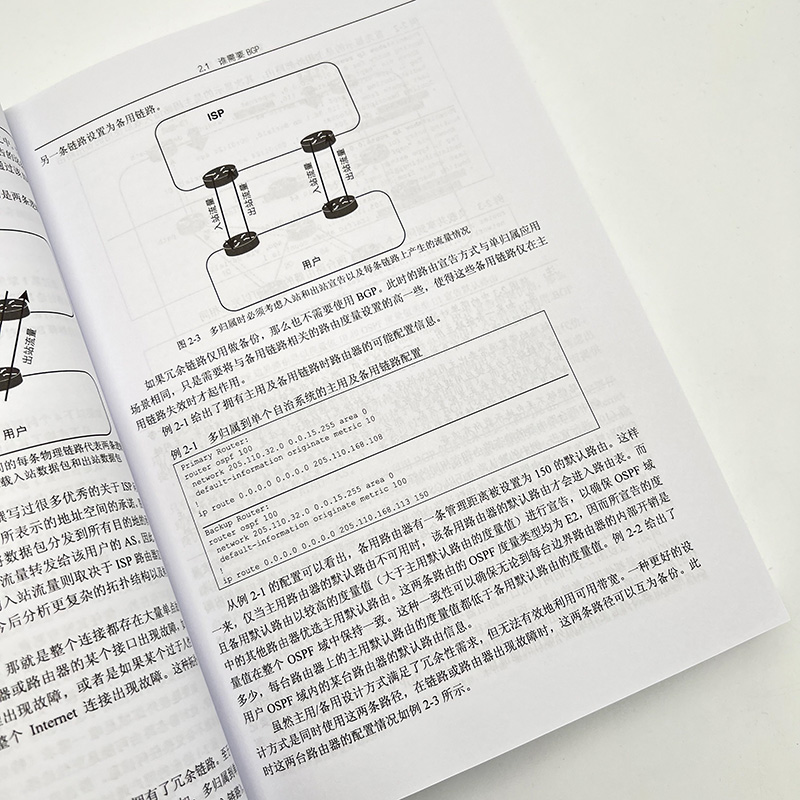 2.1 谁需要 BGP
另一条链路设置为备用链路。
ISP
入站流量
出站流量
入站流量
出站流量
用户
图 2-3 多归属时必须考虑入站和出站宣告以及每条链路上产生的流量情况
如果冗余链路仅用做备份，那么也不需要使用 BGP。此时的路由宣告方式与单归属应用
场景相同，只是需要将与备用链路相关的路由度量设置的高一些，使得这些备用链路仅在主
用链路失效时才起作用。
例 2-1 给出了拥有主用及备用链路时路由器的可能配置信息。
例 2-1 多归属到单个自治系统的主用及备用链路配置
Primary Router:
router ospf 100
network 205.110.32.0 0.0.15.255 area 0
default-information originate metric 10
ip route 0.0.0.0 0.0.0.0 205.110.168.108
Backup Router:
router ospf 100
network 205.110.32.0 0.0.15.255 area 0
default-information originate metric 100
ip route 0.0.0.0 0.0.0.0 205.110.168.113 150
从例 2-1 的配置可以看出，备用路由器有一条管理距离被设置为 150 的默认路由。这样
一来，仅当主用路由器的默认路由不可用时，该备用路由器的默认路由才会进入路由表。而
且备用默认路由以较高的度量值（大于主用默认路由的度量值）进行宣告，以确保 OSPF 域
中的其他路由器优选主用默认路由。这两条路由的 OSPF 度量类型均为 E2，因而所宣告的度
量值在整个 OSPF 域中保持一致。这种一致性可以确保无论到每台边界路由器的内部开销是
多少，每台路由器上的主用默认路由的度量值都低于备用默认路由的度量值。例 2-2 给出了
用户 OSPF 域内的某台路由器的默认路由信息。
虽然主用/备用设计方式满足了冗余性需求，但无法有效地利用可用带宽。一种更好的设
计方式是同时使用这两条路径，在链路或路由器出现故障时，这两条路径可以互为备份。此
时这两台路由器的配置情况如例 2-3 所示。
是两条
出站流量
用户
的每条物理链路代表两条
载入站数据包和出站数据包
撰写过很多优秀的关于 ISP
所表示的地址空间的承诺
将数据包分发到所有目的地
流量转发给该用户的 AS
入站流量则取决于 ISP 路由
今后分析更复杂的拓扑结构以及
那就是整个连接都存在大量单点
器或路由器的某个接口出现故障
出现故障，或者是如果某个过于
整个 Internet 连接出现故障。
拥有了冗余链路。
多归属到单